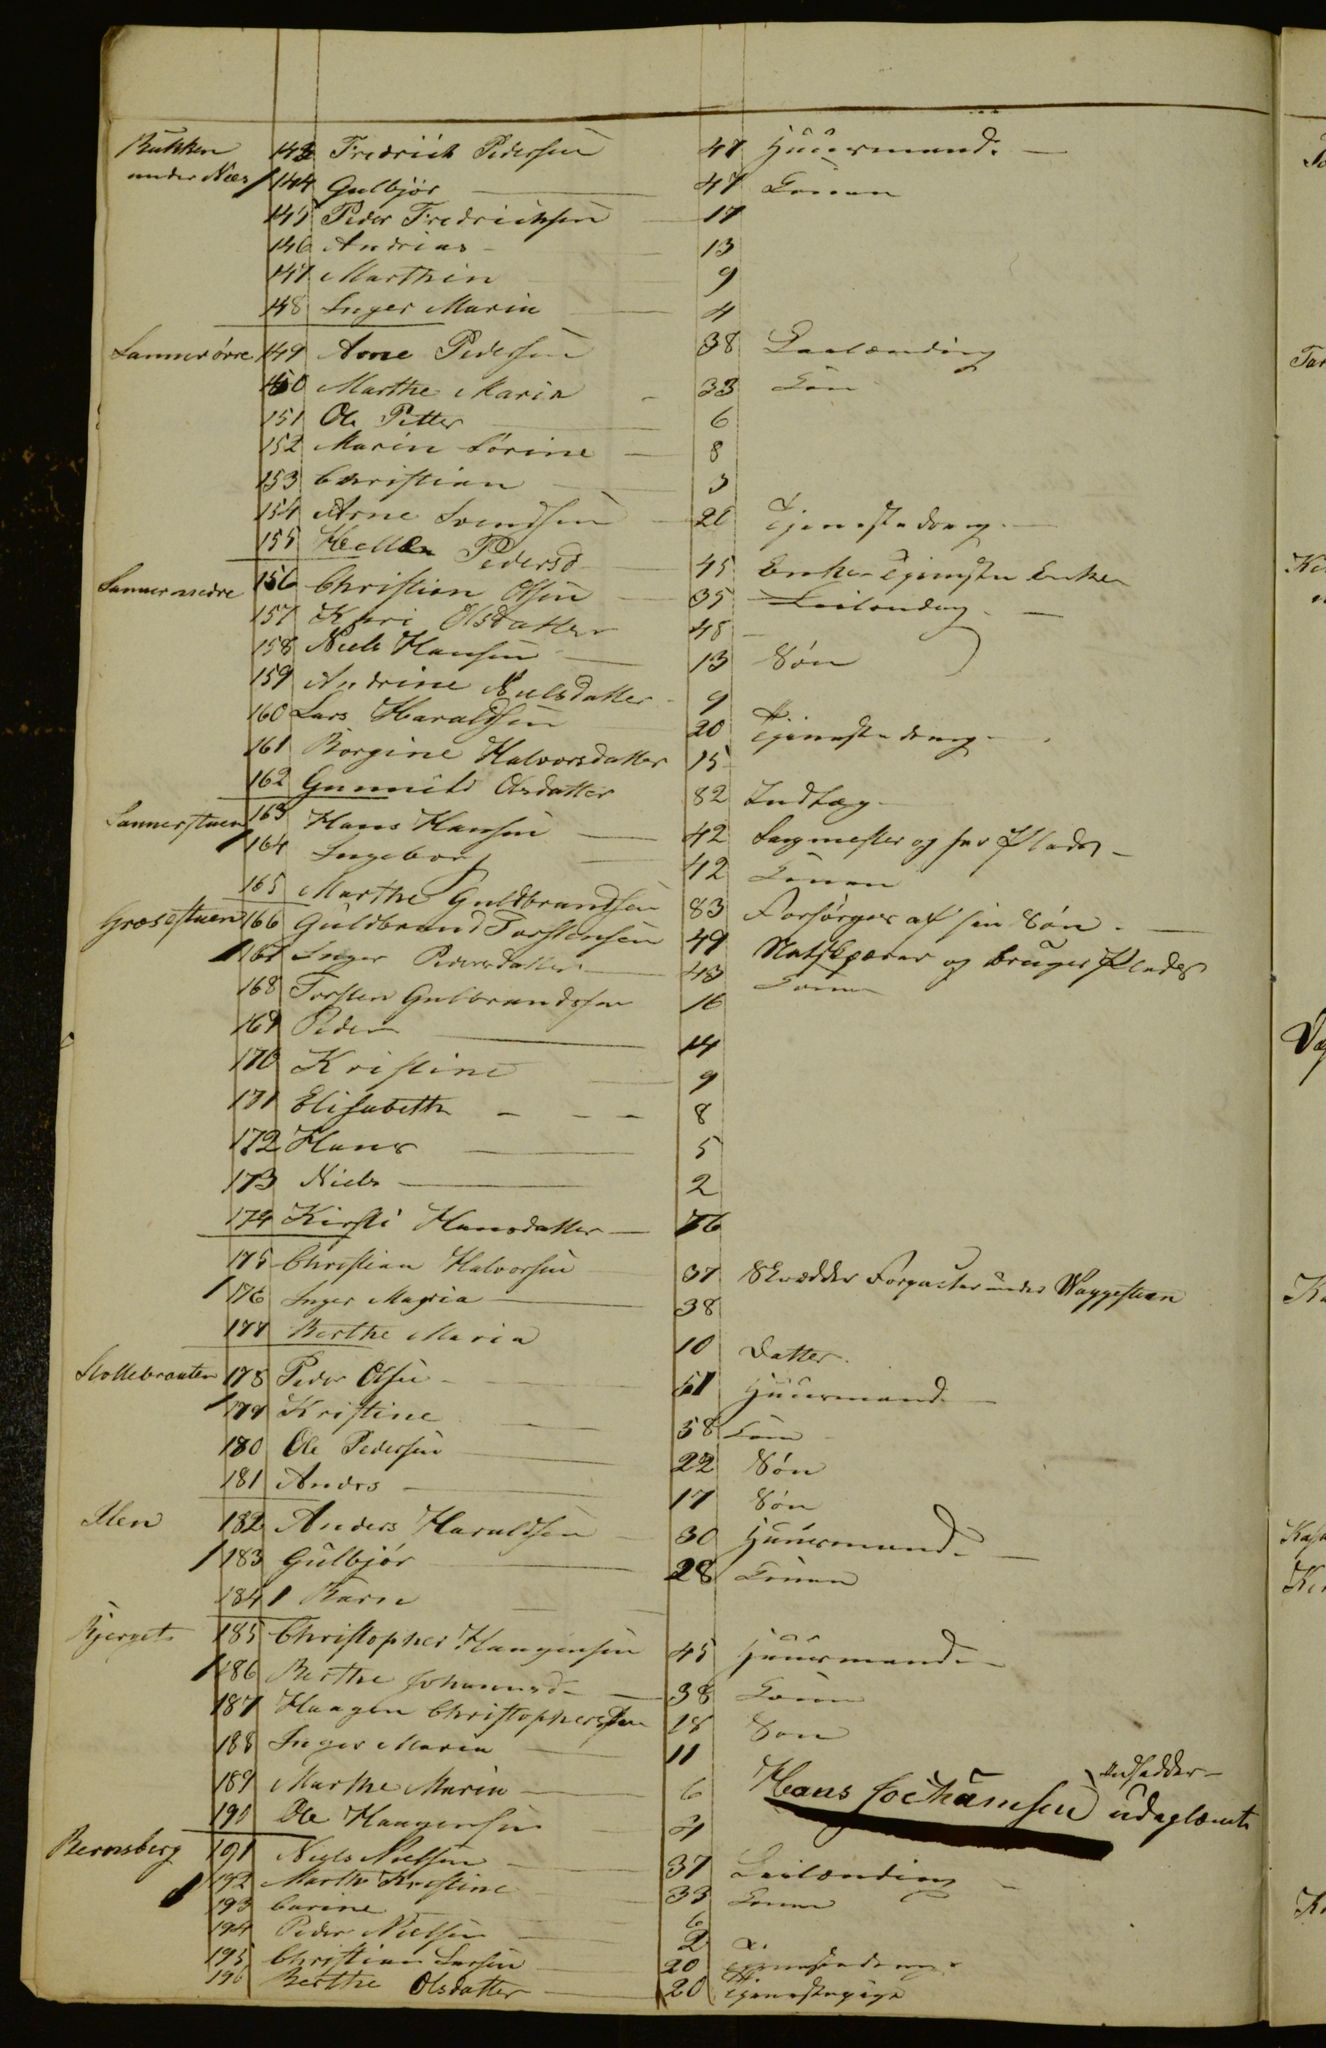 Bukken 143 Fredrich Pedersen 47 Huusmand. —
under Næs 144 Gulbjør — 47 Konen
145 Peder Fredrichsen — 17
146 Andrias — 13
147 Marthin 9
148 Inger Maria — 4
Sannerøvre 149 Arne Pedersen 38 Leilænding
150 Marthe Maria - 33 Kon
151 Ole Petter — 6
152 Maria Sørine — 8
153 Christian — 3
154 Arne Svendsen — 26 Tjenestedreng. —
155 Hellen Pedersd — 45 Enke Tjenesten Enke
Sannernedre 156 Christian Olsen — 35 Leilending. —
157 Kari Olsdatter 48 —
158 Niels Hansen — 13 Søn
159 Andrine Nielsdatter - 9
160 Lars Haraldsen 20 Tjenestedreng.
161 Borgine Halvorsdatter 15
162 Gunnild Olsdatter 82 Indlæg.
Sannerstuen 163 Hans Hansen — 42 Sagmester og har Plads —
164 Ingeborg — 42 Konen
165 Marthe Guldbrandsen 83 Forsørges af sin Søn. —
Græsestuen 166 Guldbrand Torstensen 49 og bruger Plads
167 Inger Pedersdatter — 43 Konen
168 Torsten Gulbrandsen 16
169 Peder — 14
170 Kristine — 9
171 Elisabeth — — — 8
172 Hans — 5
173 Niels — 2
174 Kirsti Hansdatter — 76
175 Christian Halvorsen 37 Skrædder Forpagter under Waggestuen
176 Inger Maria — 38
177 Berthe Maria 10 Datter.
Slottebraaten 178 Peder Olsen — 51 Huusmand. —
179 Kristine — 58 Kone
180 Ole Pedersen — 22 Søn
181 Andrs — 17 Søn
Flen 182 Anders Haraldsen — 30 Huusmand. —
183 Gulbjør — 28 Konen
184 1 Barn —
Bjerget 185 Christopher Haagensen 45 Huusmand. —
186 Berthe Johannsd. — 38 Konen
187 Haagen Christophersen 18 Søn
188 Inger Maria — 11
189 Marthe Maria — 6
Hans Jochumsen Indsadder — udeglemt
190 Ole Haagensen 4
Bernsberg 191 Niels Nielsen — 37 Leilænding —
192 Marthe Kristine — 33 Konen
193 Carine — 6
194 Peder Nielsen — 2
195 Christian Larsen — 20 Tjenestedreng.
196 Berthe Olsdatter — 20 Tjenestepige